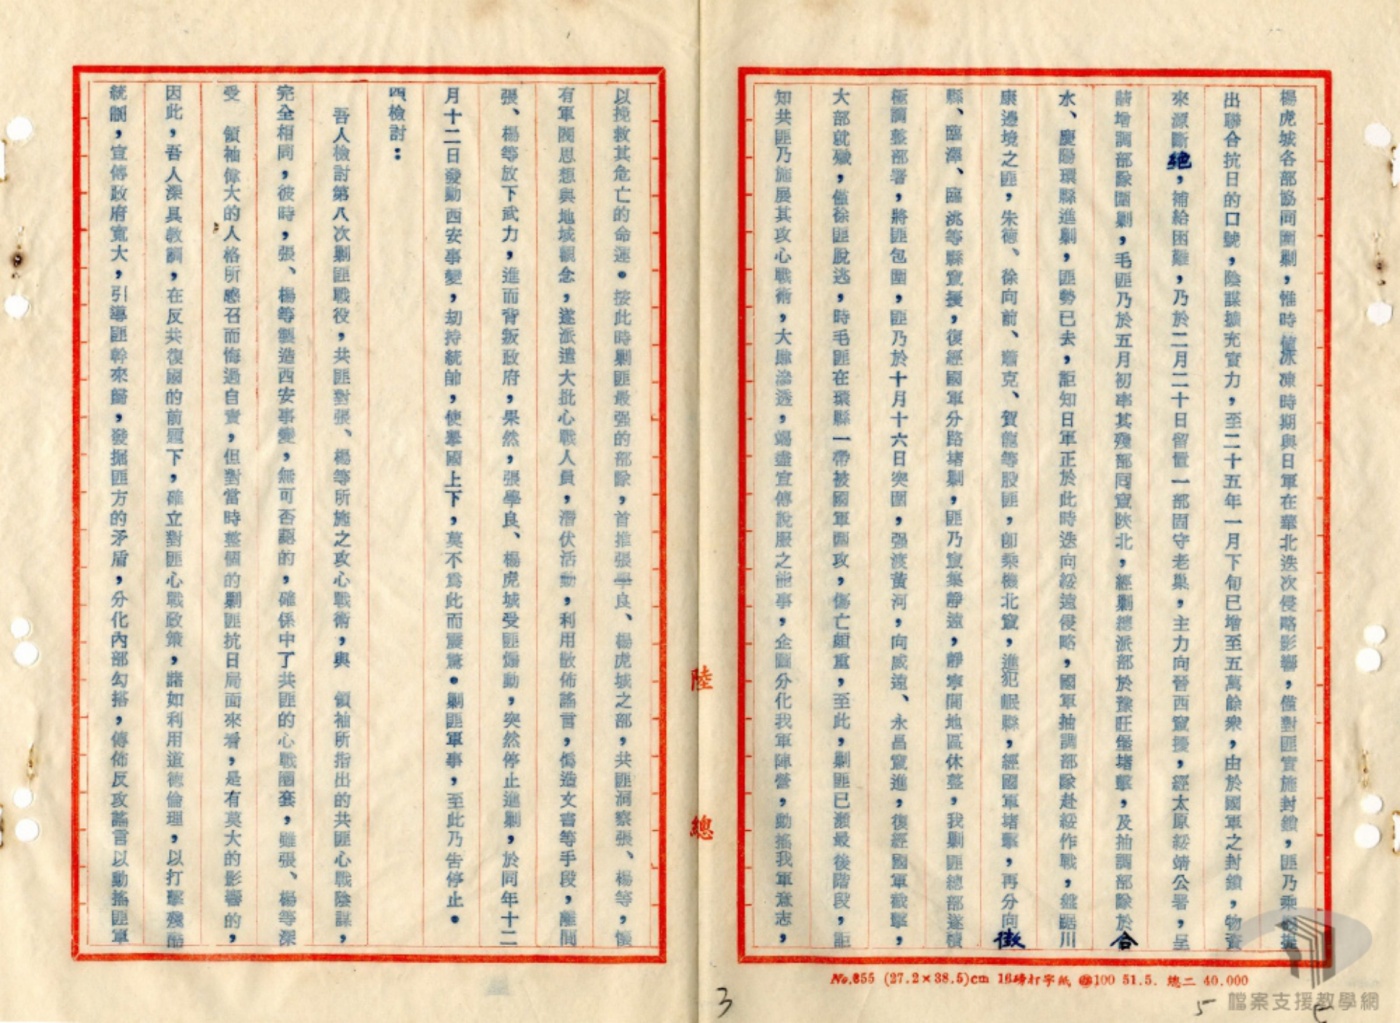 楊虎城各部協同圍剿，惟時值冰凍時期與日軍在華北迭次侵略影響，僅對匪實施封鎖，匪乃乘機提
出聯合抗日的口號，陰謀擴充實力，至二十五年一月下旬已增至五萬餘衆，由於國軍之封鎖，物資
來源斷絕，補給困難，乃於二月二十日留置一部固守老巢，主力向晉西竄擾，經太原綏靖公署，呈
請增調部隊圍剿，毛匪乃於五月初率其殘部回竄陝北，經剿總派部於豫旺堡堵擊，及抽調部隊於合
水、慶陽環縣進剿，匪勢已去，詎知日軍正於此時迭向綏遠侵略，國軍抽調部隊赴綏作戰，盤踞川
康邊境之匪，朱德、徐向前、蕭克、賀龍等股匪，卽乘機北竄，進犯岷縣，經國軍堵擊，再分向徽
縣、臨潭、臨洮等縣竄擾，復經國軍分路堵剿，匪乃竄集靜遠，靜寧間地區休整，我剿匪總部遂積
極調整部署，將匪包圍，匪乃於十月十六日突圍，强渡黃河，向威遠、永昌竄進，復經國軍截擊，
大部就殲，僅徐匪脫逃，時毛匪在環縣一帶被國軍圍攻，傷亡頗重，至此，剿匪已瀕最後階段，詎
知共匪乃施展其攻心戰術，大肆滲透，竭盡宣傳說服之能事，企圖分化我軍陣營，動搖我軍意志，
以挽救其危亡的命運。按此時剿匪最强的部隊，首推張學良、楊虎城之部，共匪洞察張、楊等，懷
有軍閥思想與地域觀念，遂派遣大批心戰人員，潛伏活動，利用散佈謠言，偽造文書等手段，離間
張、楊等放下武力，進而背叛政府，果然，張學良、楊虎城受匪煽動，突然停止進剿，於同年十二
月十二日發動西安事變，劫持統帥，使舉國上下，莫不爲此而震驚。剿匪軍事，至此乃告停止。
四檢討：
吾人檢討第八次剿匪戰役，共匪對張、楊等所施之攻心戰術，與　領袖所指出的共匪心戰陰謀，
完全相同，彼時，張、楊等製造西安事變，無可否認的，確係中了共匪的心戰圈套，雖張、楊等深
受　領袖偉大的人格所感召而悔過自責，但對當時整個的剿匪抗日局面來看，是有莫大的影響的，
因此，吾人深具教訓，在反共復國的前題下，確立對匪心戰政策，諸如利用道德倫理，以打擊殘酷
統制，宣傳政府寬大，引導匪幹來歸，發掘匪方的矛盾，分化內部勾搭，傳佈反攻謠言以動搖匪軍
陸總
No.855 (27.2×38.5)cm 16磅打字紙 100 51.5. 總二 40.000
3
5
檔案支援教學網